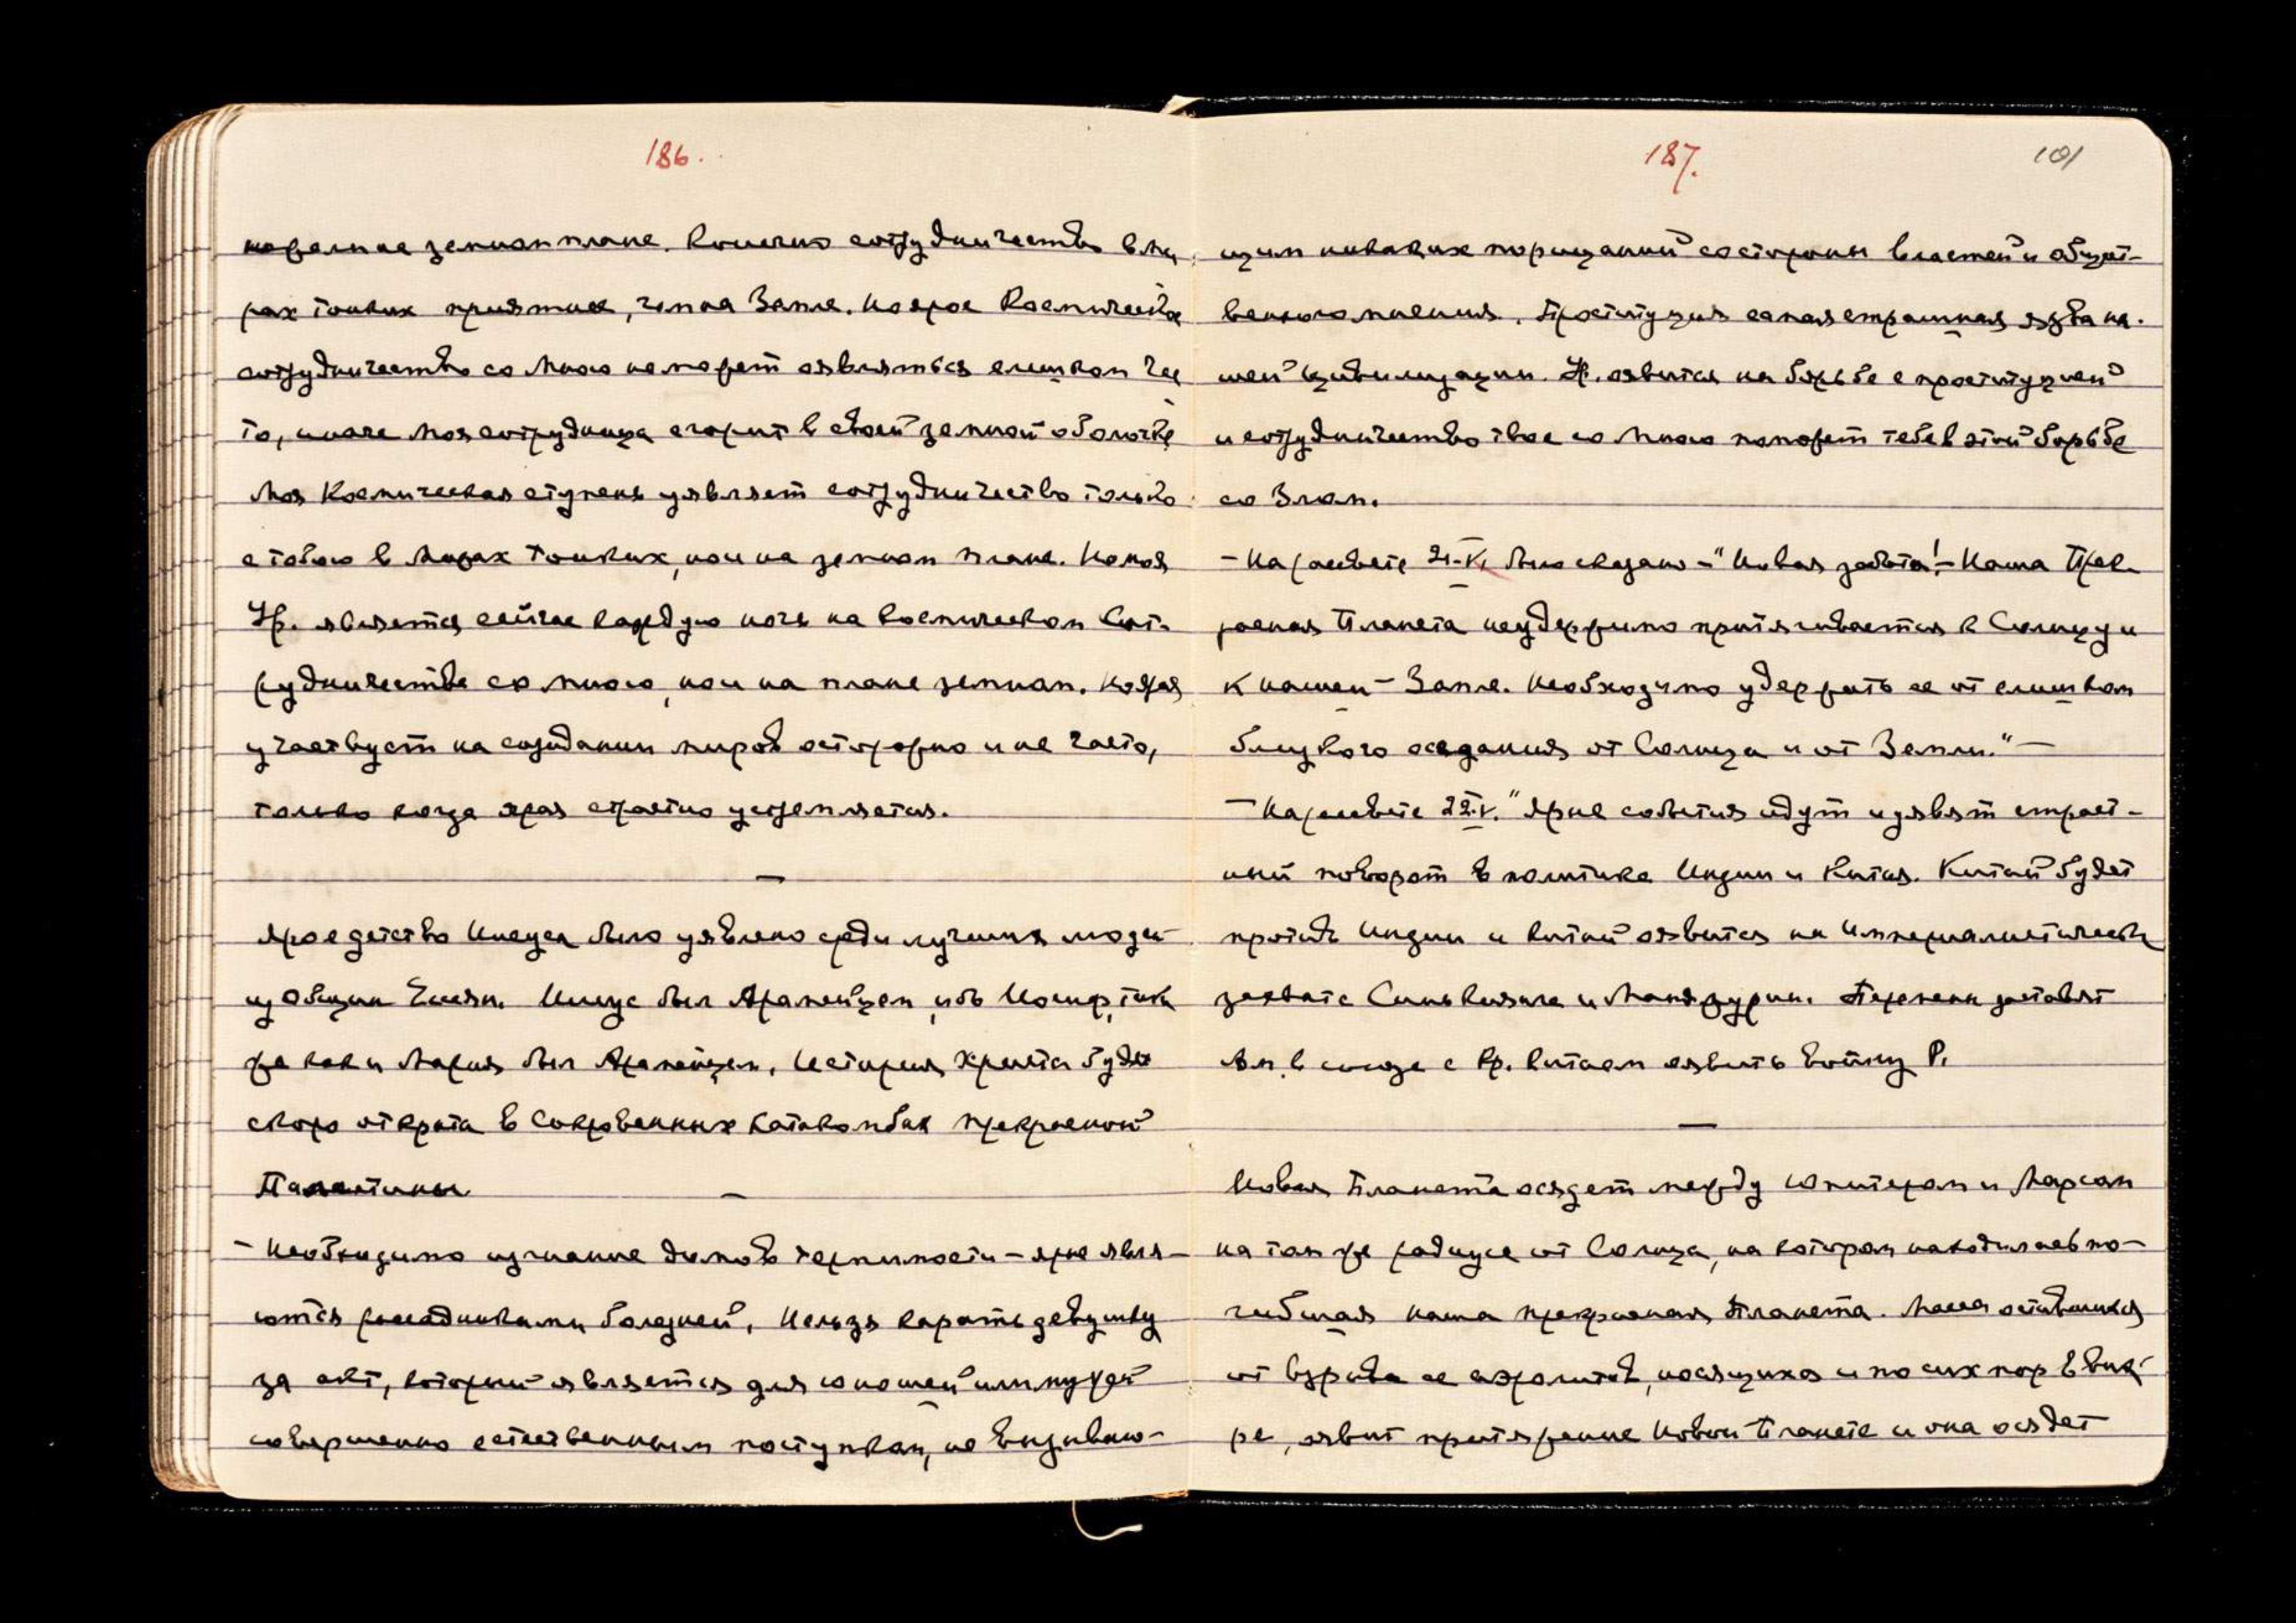 186.
на земном плане. Конечно сотрудничество в Ми
рах тонких приятнее, чем на Земле. Но ярое Космическое
сотрудничество со Мною не может являться слишком час
то, иначе Моя сотрудница сгорит в своей земной оболочке
Моя Космическая ступень уявляет сотрудничество только
с тобою в Мирах Тонких, но и на земном плане. Но моя
Ур. является сейчас каждую ночь на Космическом Сот-
рудничестве со мною, но и на плане земном. Но ярая
участвует на созидании миров осторожно и не часто,
только когда ярая страстно устремляется.
Ярое детство Иисуса было уявлено среди лучших людей
из Общины Ессеян. Иисус был Арамейцем, ибо Иосиф, так
же как и Мария был Арамейцем. История Христа будет
скоро открыта в Сокровенных катакомбах прекрасной
Палестины
- Необходимо изгнание домов терпимости - ярые явля-
ются рассадниками болезней. Нельзя карать девушку
за акт, который является для юношей или мужей
совершенно естественным поступком, не вызываю-
187.
101
щим никаких порицаний со стороны властей и общест-
венного мнения. Проституция самая страшная язва на-
шей цивилизации. Ур. явится на борьбе с проституцией
и сотрудничество твое со Мною поможет тебе в этой борьбе
со Злом.
- На рассвете 21.V. было сказано - "Новая забота! - Наша Прек-
расная Планета неудержимо притягивается к Солнцу и
к нашей - Земле. Необходимо удержать ее от слишком
близкого оседания от Солнца и от Земли." -
- На рассвете 22.V. "Ярые события идут и уявят страст-
ный поворот в политике Индии и Китая. Китай будет
против Индии и Китай явится на Империалистическом
захвате Синь Киянга и Манджурии. Перемены заставят
Ам. в союзе с Кр. Китаем явить войну Р.
Новая Планета осядет между Юпитером и Марсом
на том же радиусе от Солнца, на котором находилась по-
гибшая наша прекрасная Планета. Масса оставшихся
от взрыва ее аэролитов, носящихся и по сих пор в вих-
ре, явит притяжение Новой Планете и она осядет